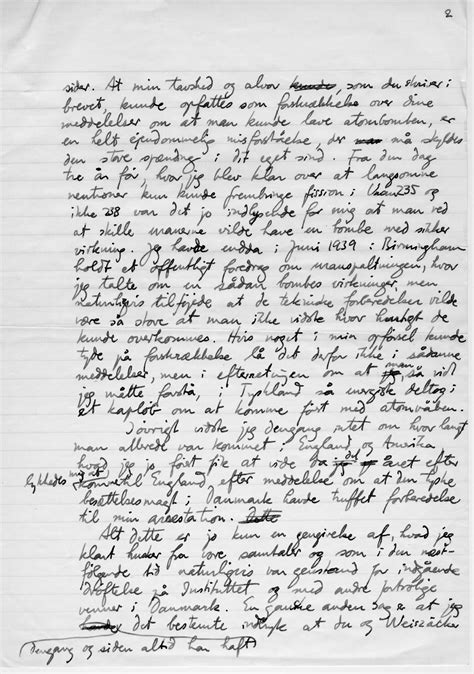 2
sider. At min tavshed og alvor kunde, som du skriver i
brevet, kunde opfattes som forskrækkelse over dine
meddelelser om at man kunde lave atombomben, er
en helt ejendommelig misforståelse, der må skyldes
den store spænding i dit eget sind. Fra den dag
tre år før, hvor jeg blev klar over at langsomme
neutroner kun kunde frembringe fission i Uran 235 og
ikke 238 var det jo indlysende for mig at man ved
at skille uranerne vilde have en bombe med sikker
virkning. Jeg havde endda i Juni 1939 i Birmingham
holdt et offentligt foredrag om uranspaltningen, hvor
jeg talte om en sådan bombes virkninger, men
naturligvis tilføjede at de tekniske forberedelser vilde
være så store at man ikke vidste hvor hurtigt de
kunde overkommes. Hvis noget i min opførsel kunde
tyde på forskrækkelse lå det derfor ikke i sådanne
meddelelser, men i efterretningen om at man, så vidt
jeg måtte forstå, i Tyskland så energisk deltog i
et kapløb om at komme først med atomvåben.
Iøvrigt vidste jeg dengang intet om hvor langt
man allerede var kommet i England og Amerika
hvad jeg jo først fik at vide da jeg året efter
lykkedes at komme til England, efter meddelelse om at den tyske
besættelsesmagt i Danmark havde truffet forberedelse
til min arrestation. Dette
Alt dette er jo kun en gengivelse af, hvad jeg
klart husker fra vore samtaler og som i den næst-
følgende tid naturligvis var genstand for indgående
drøftelse på Instituttet og med andre fortrolige
venner i Danmark. En ganske anden sag er at jeg
det bestemte indtryk at du og Weiszäcker
(dengang og siden altid har haft)